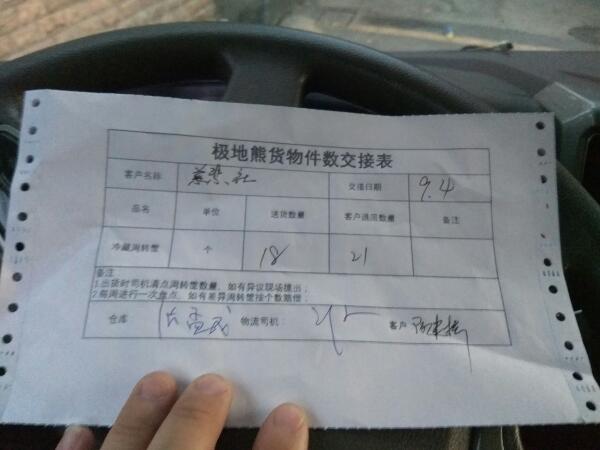 极地熊货物件数交接表
客户名称 交接日期 9.4
品名 单位 送货数量 客户退回数量 备注
冷藏周转筐 个 18 21
备注
1.出货时司机清点周转筐数量，如有异议现场提出；
2.每周进行一次盘点，如有差异周转筐按个数赔偿；
仓库 物流司机： 客户